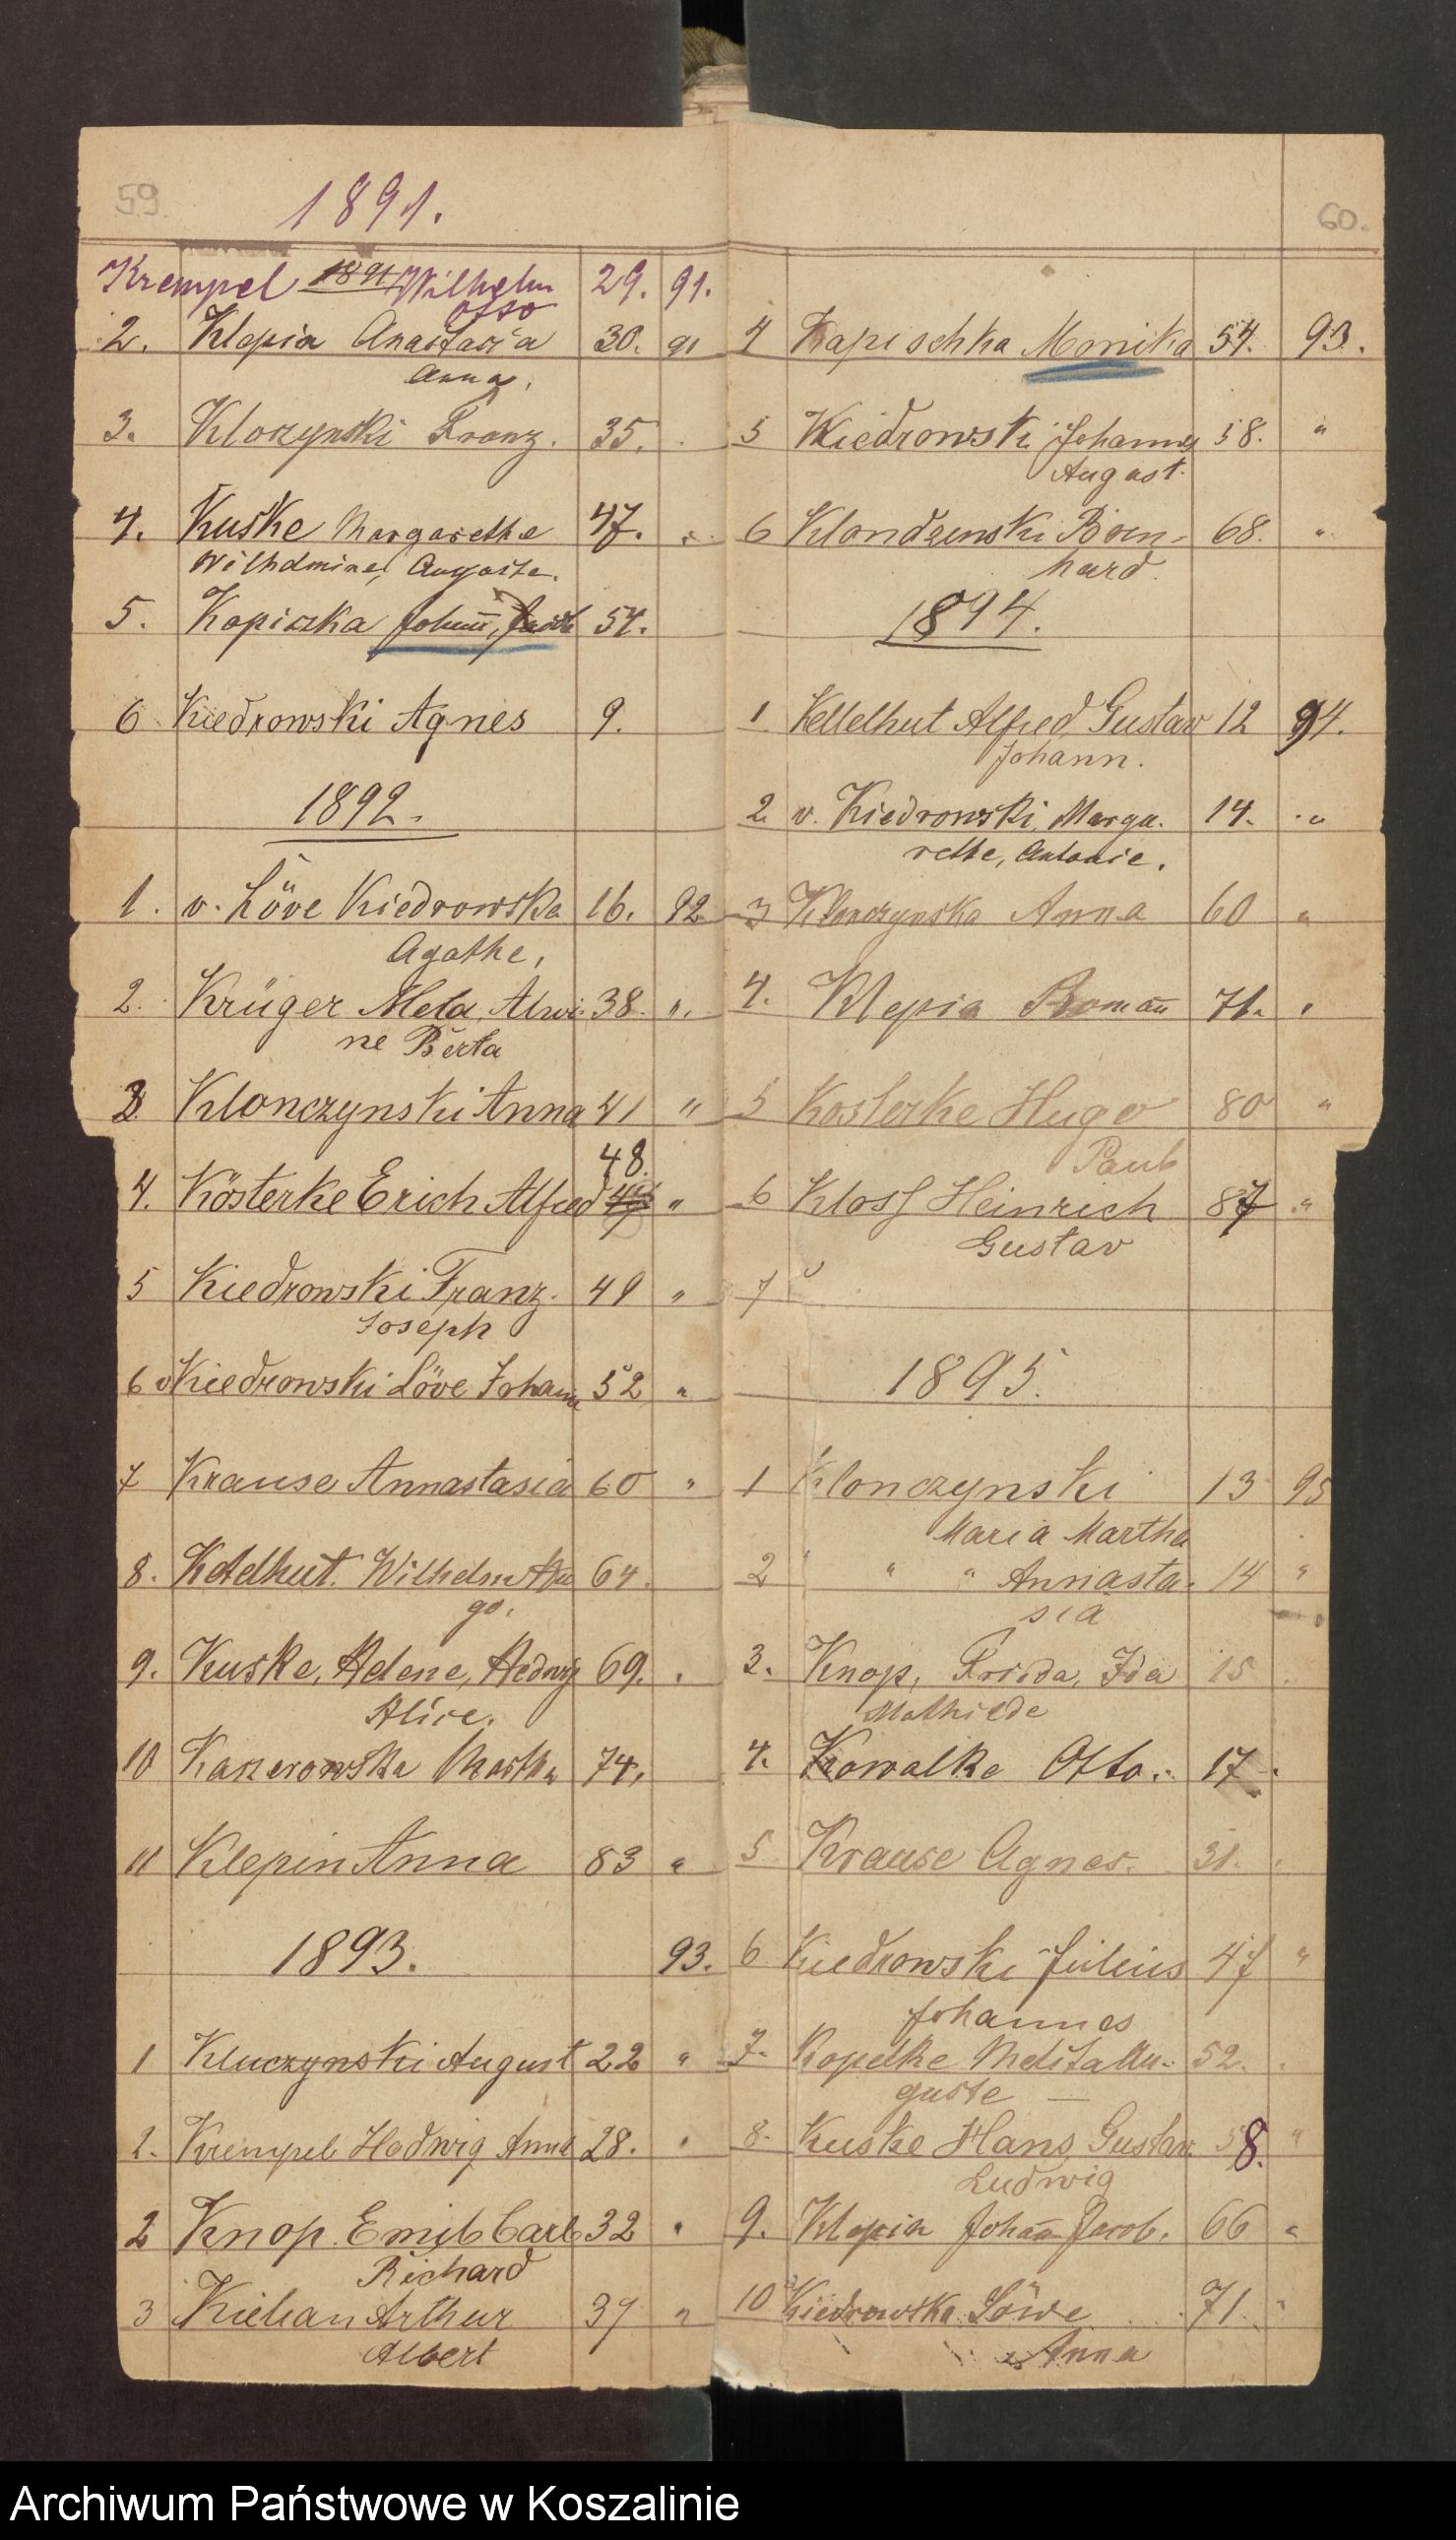 59
1891.
Krempel 1891 Wilhelm 29. 91.
Otto
2. Klepin Anastasia 30. 91
Anna,
3. Klonzynski Franz. 35. .
4. Kuske Margarethe 47. "
Wilhelmine, Auguste.
5. Kopiszka Johann, Jacob 54.
6 Kiedrowski Agnes 9.
1892.
1. v. Löve Kiedrowska 16. 92
Agathe,
2. Krüger Meta, Alwi- 38. ".
ne Berta
3 Klonczynski Anna 41 "
48.
4. Kösterke Erich Alfred 49 "
5 Kiedrowski Franz. 49 "
Joseph
6 v Kiedrowski Löve Johann 52 "
7 Krause Annastasia 60 "
8. Kettelhut. Wilhelm Hu 64.
go.
9. Kuske, Helene, Hedwig 69. .
Alice.
10 Kaszerowska Martha 74.
11 Klepin Anna 83 "
1893. 93.
1 Kluczynski August 22 "
2. Krempel Hedwig Anna 28. "
2 Knop. Emil Carl 32 "
Richard
3 Kiehan Arthur 37 "
Albert
60.
4 Kapischka Monika 54. 93.
5 Kiedrowski Johannes 58. "
August.
6 Klondzenski Bern- 68. "
hard.
1894.
1. Kellelhut Alfred Gustav 12 94.
Johann.
2. v. Kiedrowski, Marga- 14. "
rethe, Antonie.
3 Klonczynska Anna 60 "
4. Klepin Romann 71. "
5 Kosterke Hugo 80 "
Paul
6 Kloss Heinrich 87 "
Gustav
7
1895.
1 Klonczynski 13 95
Maria Martha
2 " " Annasta- 14 "
sia
3. Knop, Frieda, Ida 15 .
Mathilde
4. Kowalke Otto. 17 .
5 Krause Agnes. 31. .
6 Kiedrowski Julius 47 "
Johannes
7. Kopelke Melita Au- 52. .
guste —
8. Kuske Hans, Gustav. 58. "
Ludwig
9. Klepin Johann Jacob. 66 "
10 v Kiedrowska Löwe 71. "
Anna
Archiwum Państwowe w Koszalinie